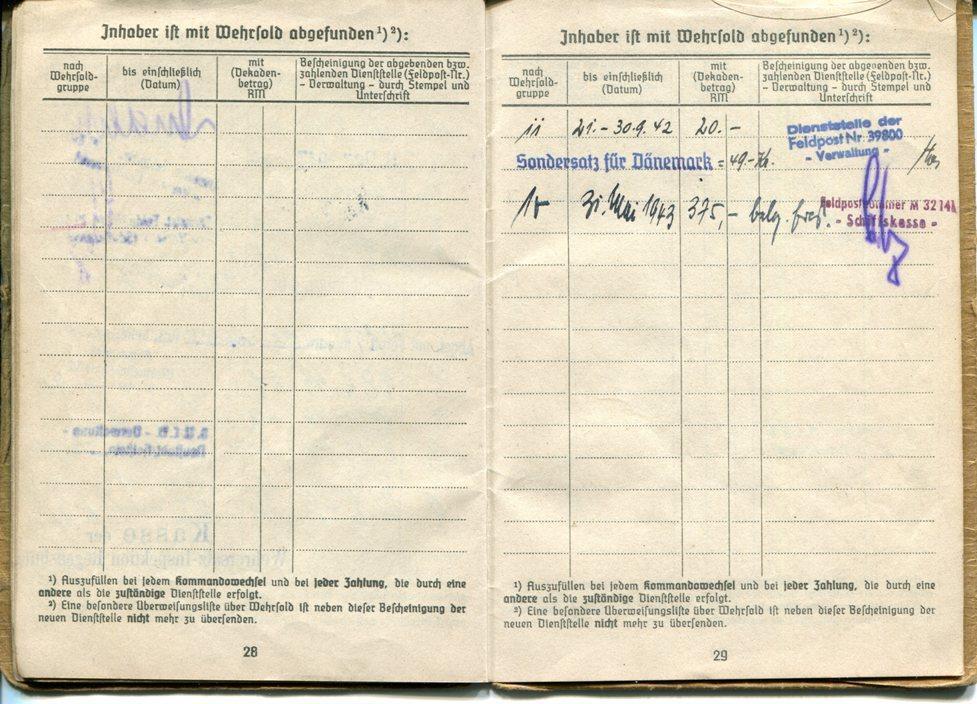 Inhaber ist mit Wehrsold abgefunden¹)²):
nach Wehrsold-gruppe
bis einschließlich (Datum)
mit (Dekaden-betrag) RM
Bescheinigung der abgebenden bzw. zahlenden Dienststelle (Feldpost-Nr.) - Verwaltung - durch Stempel und Unterschrift
Kasse der
¹) Auszufüllen bei jedem Kommandowechsel und bei jeder Zahlung, die durch eine
andere als die zuständige Dienststelle erfolgt.
²) Eine besondere Überweisungsliste über Wehrsold ist neben dieser Bescheinigung der
neuen Dienststelle nicht mehr zu übersenden.
28
Inhaber ist mit Wehrsold abgefunden¹)²):
nach Wehrsold-gruppe
bis einschließlich (Datum)
mit (Dekaden-betrag) RM
Bescheinigung der abgebenden bzw. zahlenden Dienststelle (Feldpost-Nr.) - Verwaltung - durch Stempel und Unterschrift
21.-30.9.42 20.-
Dienststelle der
Feldpost Nr. 39800
- Verwaltung -
Sondersatz für Dänemark = 49-
31. Mai 1943 375,- belg. frcs.
Feldpostnummer M 32141
- Schiffskasse -
¹) Auszufüllen bei jedem Kommandowechsel und bei jeder Zahlung, die durch eine
andere als die zuständige Dienststelle erfolgt.
²) Eine besondere Überweisungsliste über Wehrsold ist neben dieser Bescheinigung der
neuen Dienststelle nicht mehr zu übersenden.
29